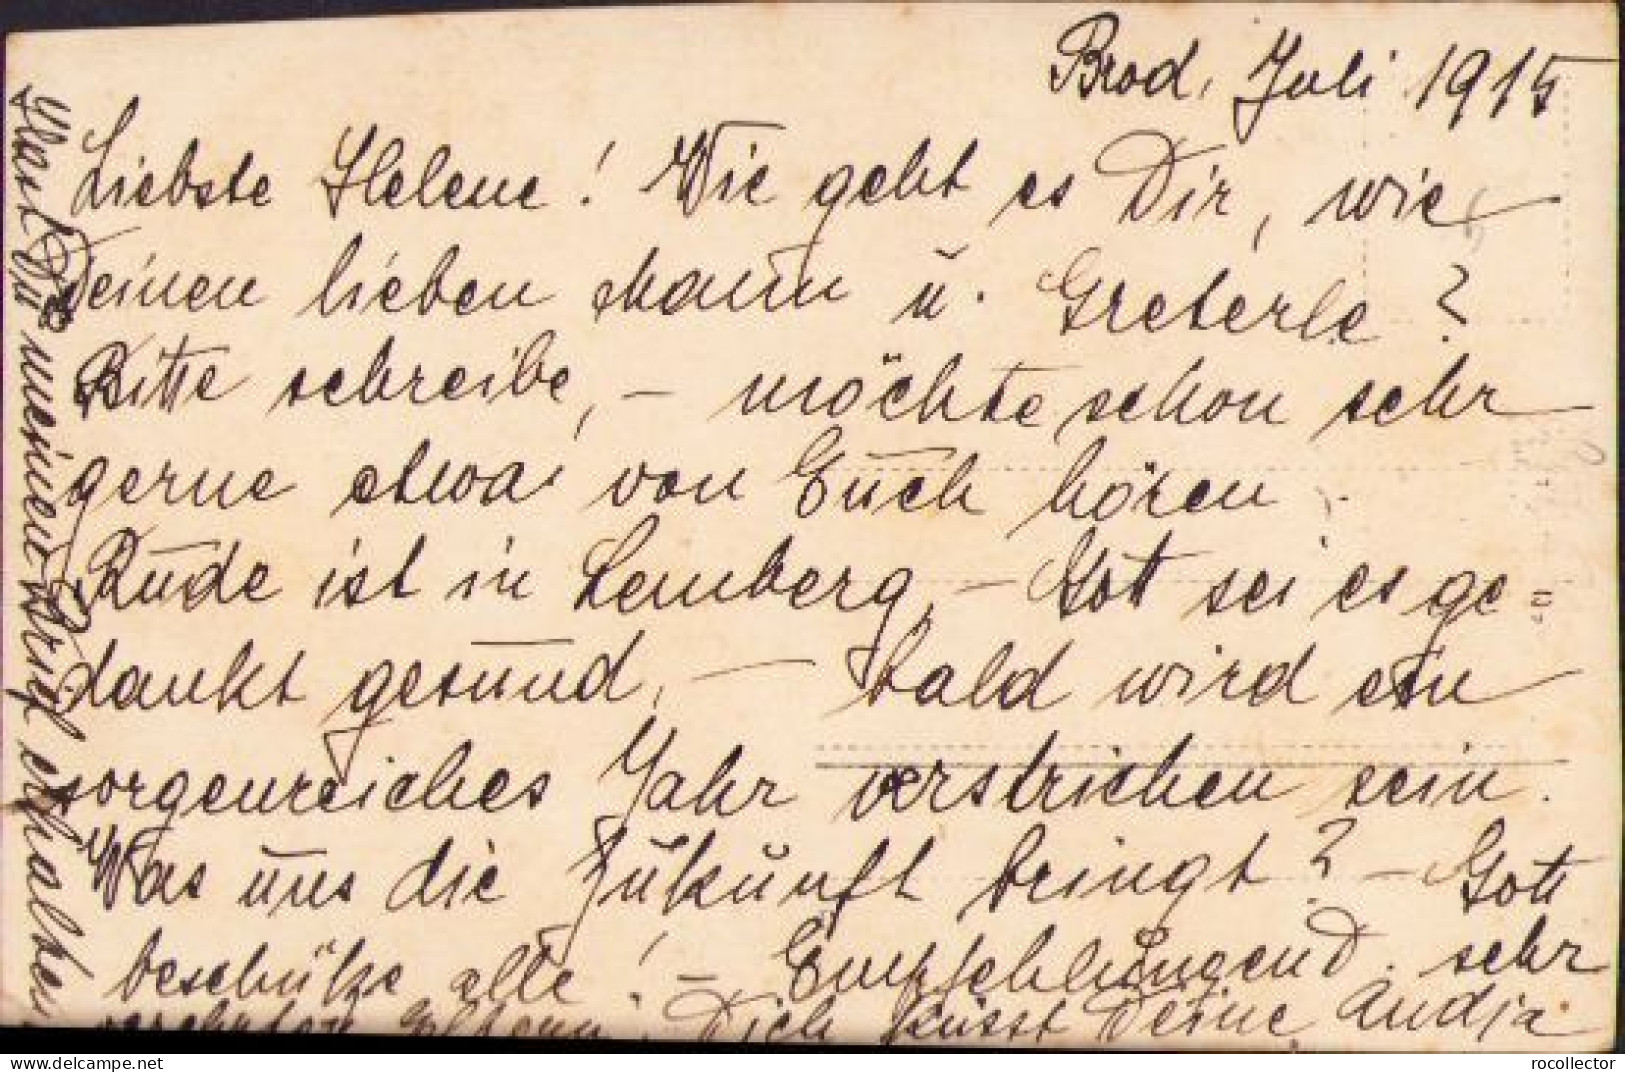 Brod, Juli 1915
Liebste Helene! Wie geht es Dir, wie
Deinen lieben Mann u. Greterle?
Bitte schreibe, – möchte schon sehr
gerne etwas von Euch hören.
Rude ist in Lemberg, – Gott sei es ge
dankt gesund, – bald wird ein
sorgenreiches Jahr verstrichen sein.
Was uns die Zukunft bringt? – Gott
beschütze alle! – Empfehlungen d. sehr
verehrten Eltern, Dich küsst Deine Andja
Hast Du meinen Brief erhalten
rocollector